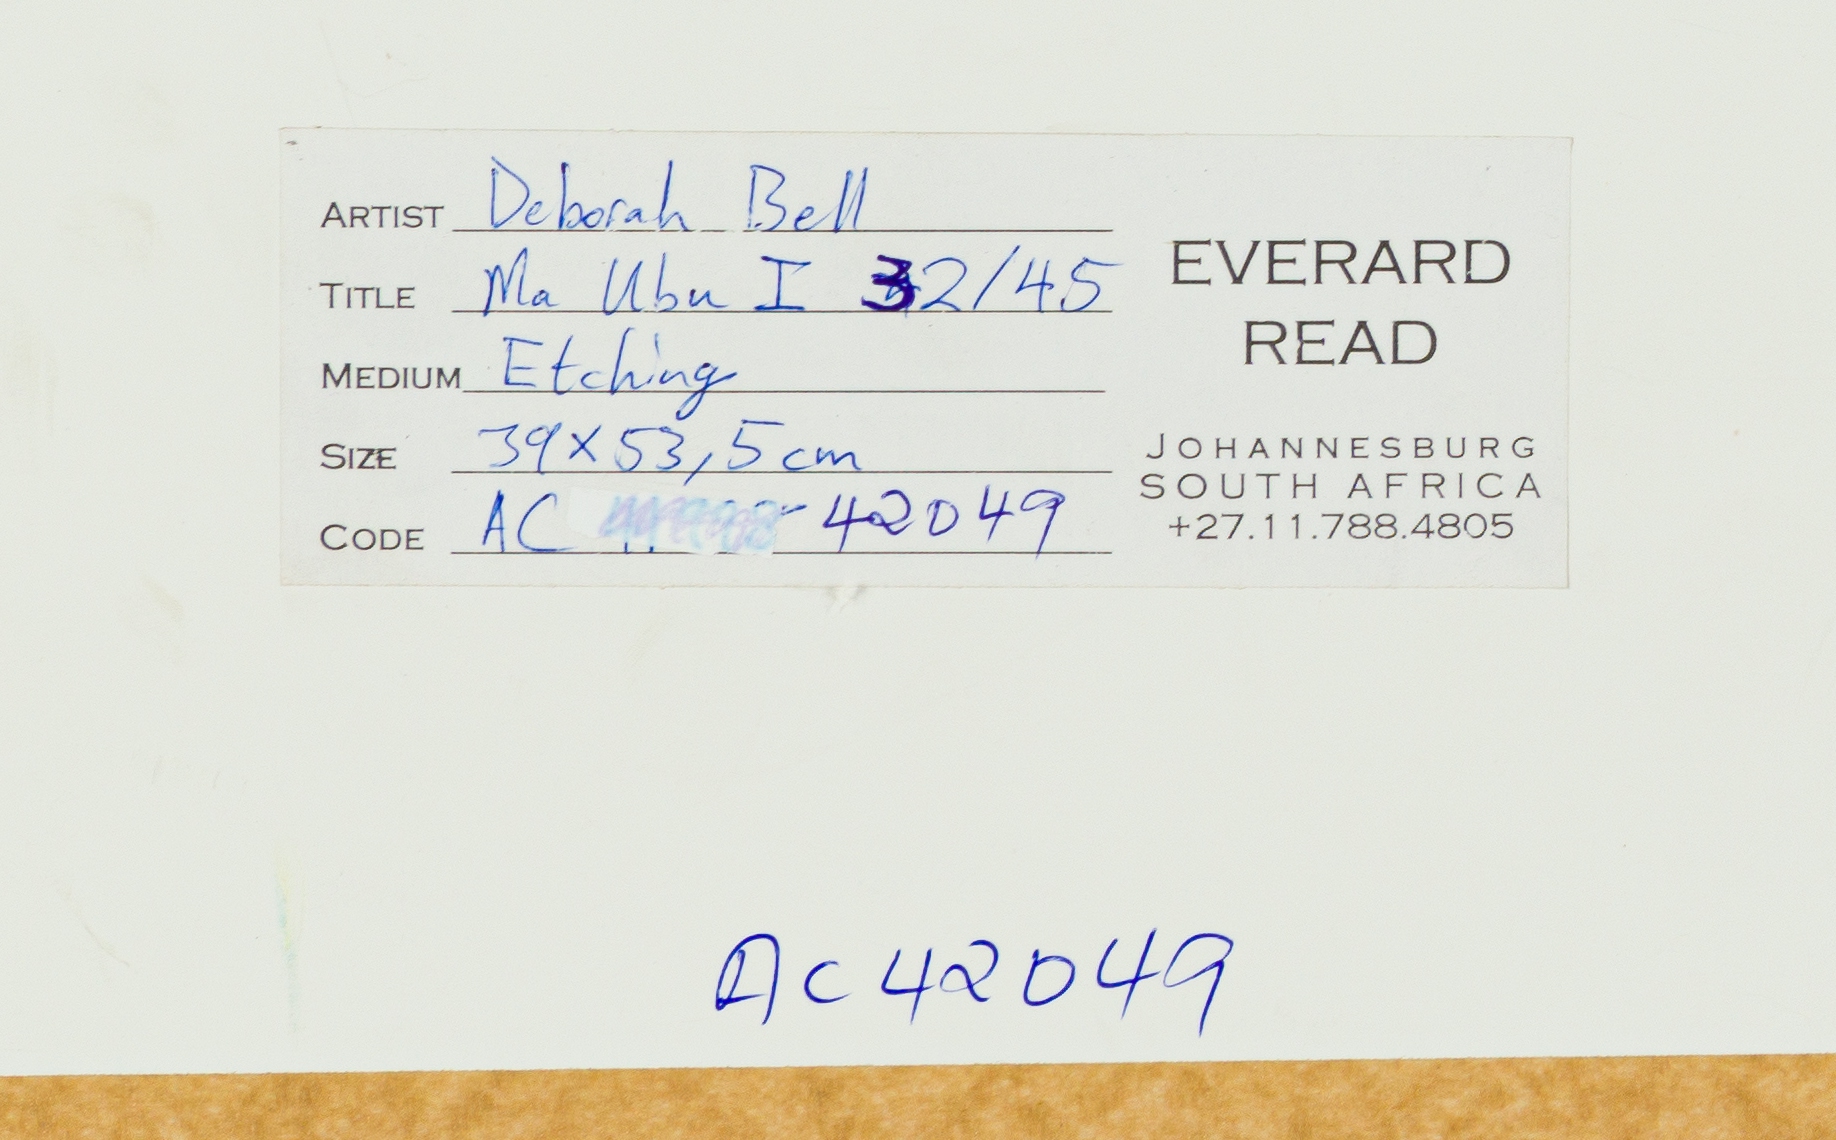 ARTIST Deborah Bell
TITLE Ma Ubu I 32/45
MEDIUM Etching
SIZE 39x53,5cm
CODE AC 42049
EVERARD
READ
JOHANNESBURG
SOUTH AFRICA
+27.11.788.4805
AC42049